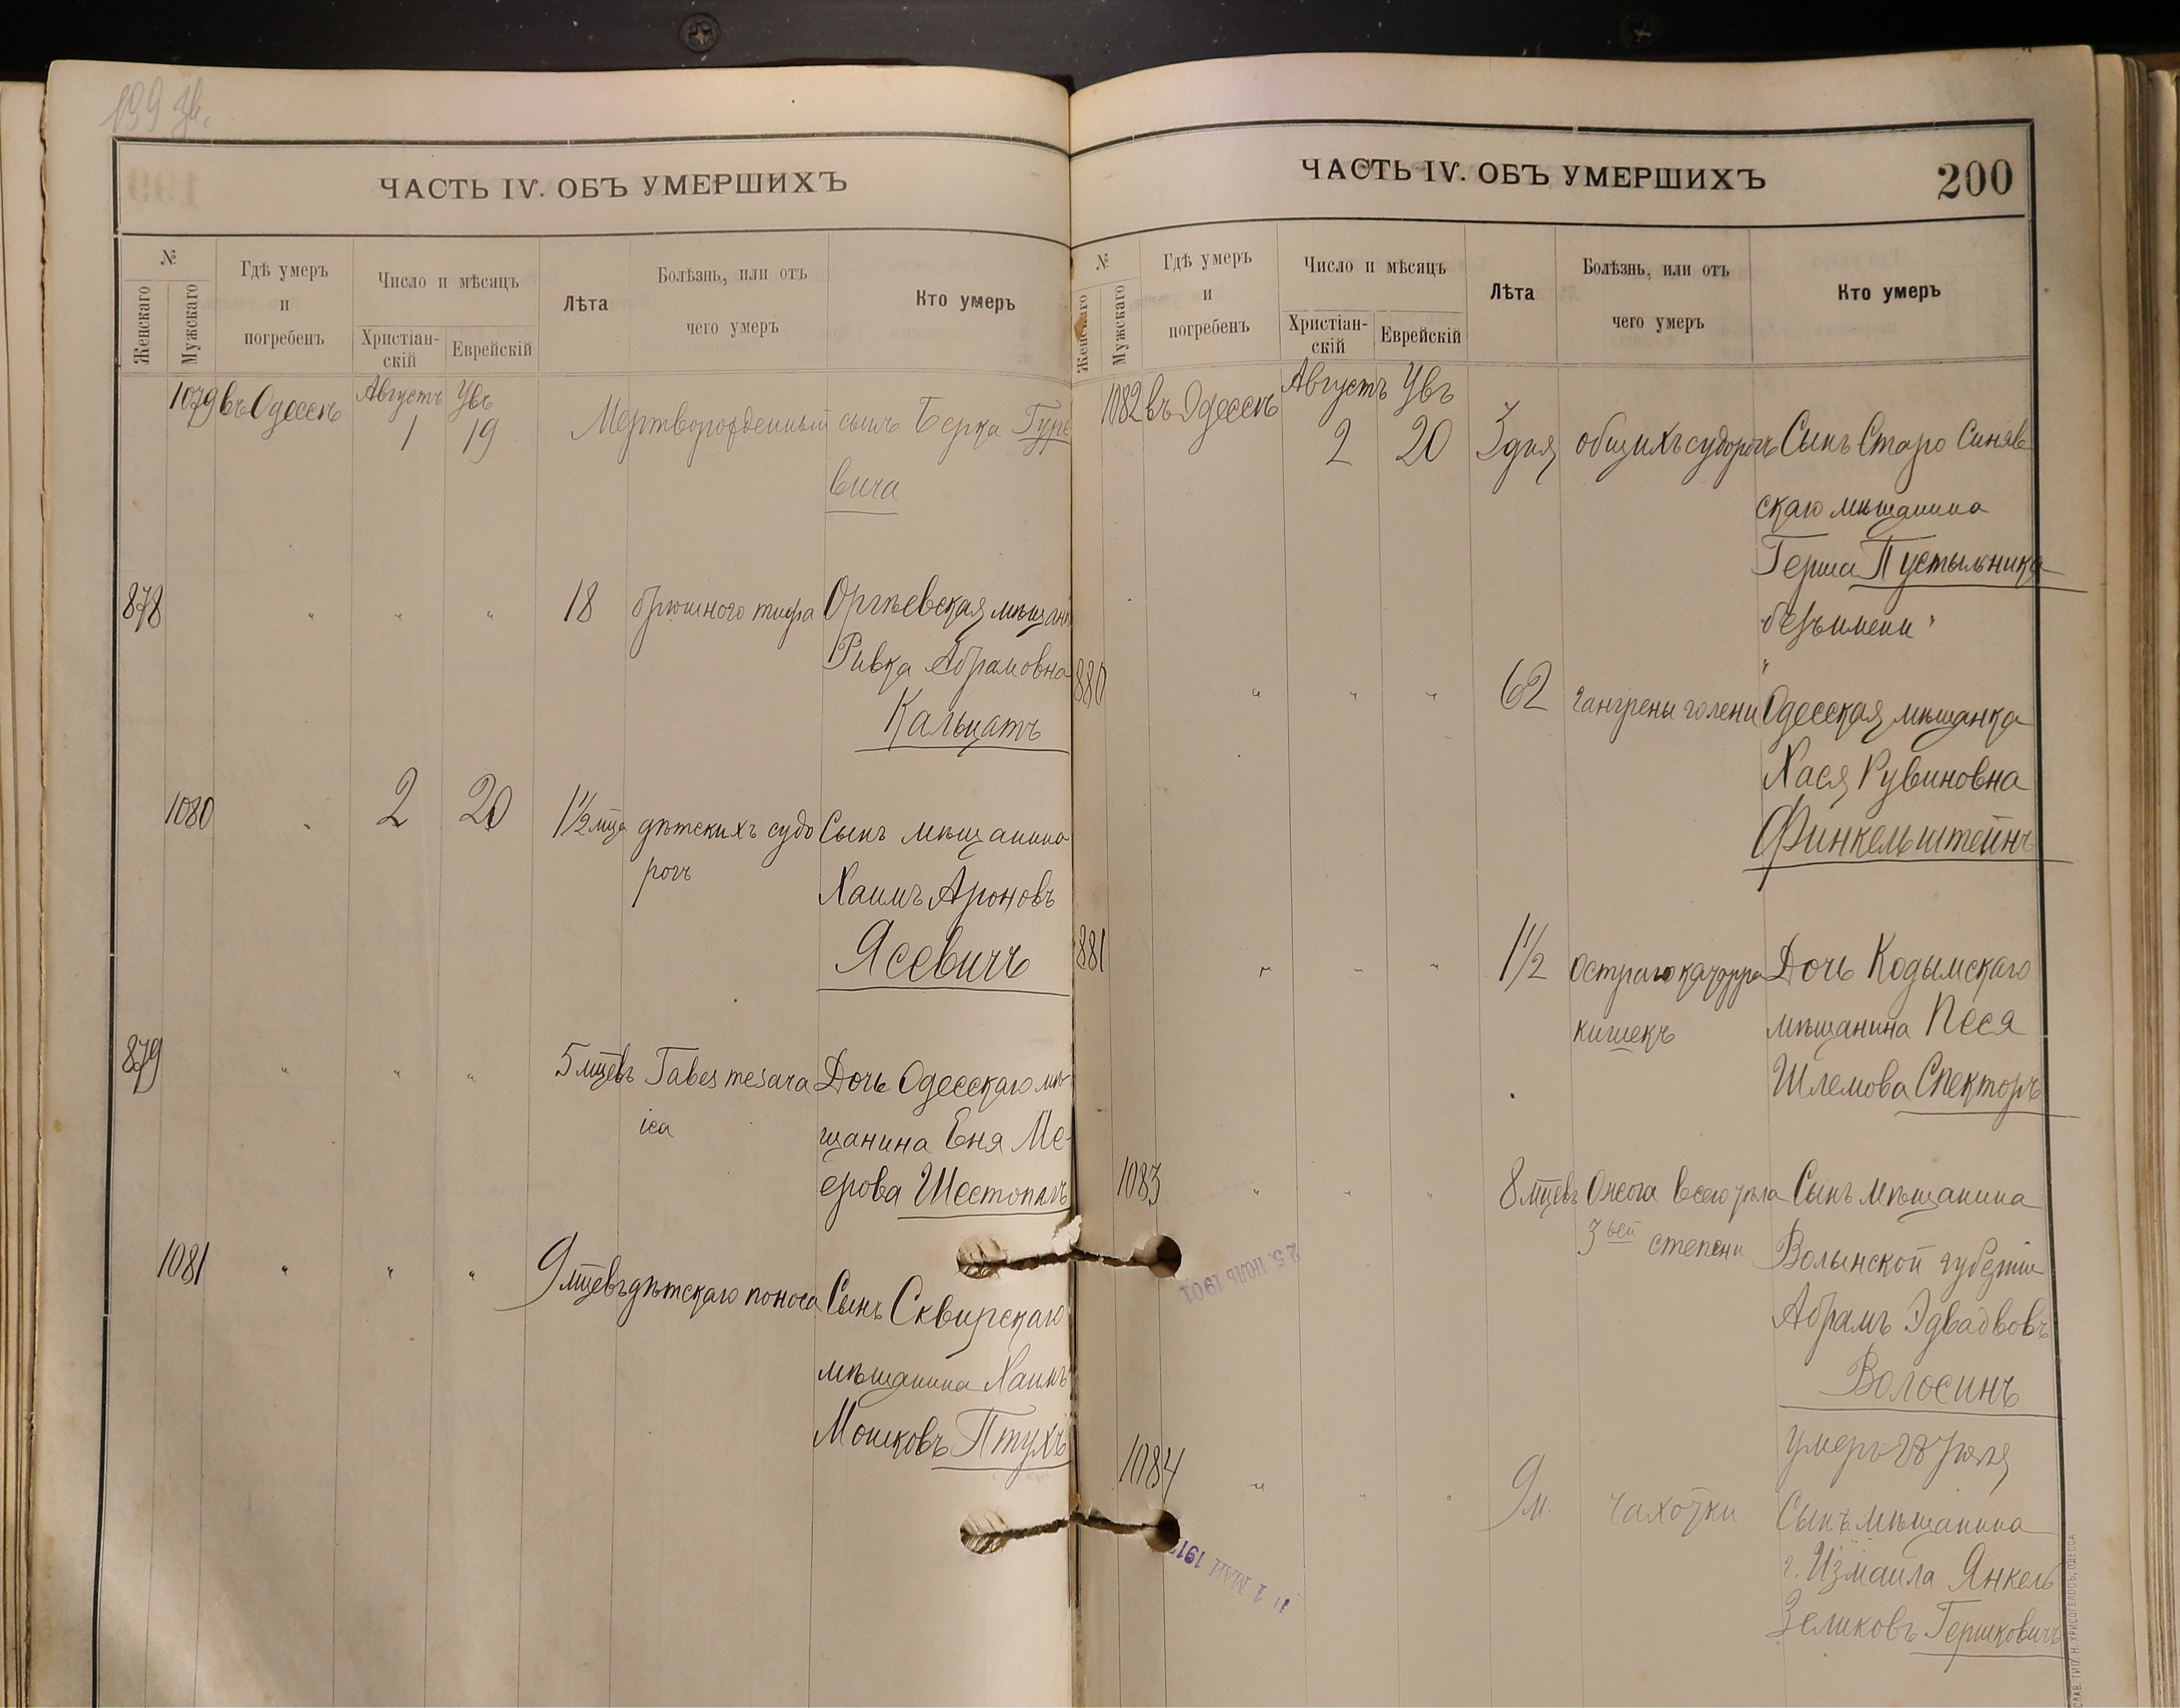 199 зв.
ЧАСТЬ IV. ОБЪ УМЕРШИХЪ
№
Женскаго
Мужскаго
Гдѣ умеръ
и
погребенъ
Число и мѣсяцъ
Христіан-
скій
Еврейскій
Лѣта
Болѣзнь, или отъ
чего умеръ
Кто умеръ
1079 въ Одессѣ Августъ Увъ
1 19 Мертворожденный сынъ Берка Гуре
вича
878 " " " 18 брюшного тифа Оргѣевская мѣщан
Ривка Абрамовна
Кальцатъ
1080 " 2 20 1½ мца дѣтскихъ судо Сынъ мѣщанина
рогъ
Хаимъ Ароновъ
Ясевичъ
879 " " " 5 мцевъ Tabes mesara Дочь Одесскаго мѣ-
ica
щанина Еня Ме-
ерова Шестопалъ
1081 " " " 9 мцевъ дѣтскаго поноса Сынъ Сквирскаго
мѣщанина Хаимъ
Мошковъ Птухъ
ЧАСТЬ IV. ОБЪ УМЕРШИХЪ
200
№
Женскаго
Мужскаго
Гдѣ умеръ
и
погребенъ
Число и мѣсяцъ
Христіан-
скій
Еврейскій
Лѣта
Болѣзнь, или отъ
чего умеръ
Кто умеръ
1082 въ Одессѣ Августъ Увъ
2 20 3 дня общихъ судорогъ Сынъ Старо Синяв
скаго мѣщанина
Герша Пустыльника
безъ имени "
880 " " " 62 гангрены голени Одесская мѣщанка
Хася Рувиновна
Финкельштейнъ
881 " " " 1½ Остраго катарра Дочь Кодымскаго
кишекъ мѣщанина Песя
Шлемова Спекторъ
1083 " " " 8 мцевъ Ожога всего тѣла Сынъ мѣщанина
3ьей степени Волынской губерніи
Абрамъ
Волосинъ
умеръ 28 Іюля
1084 " " " 9 м. чахотки Сынъ мѣщанина
г. Измаила Янкель
Зеликовъ Гершковичъ
25. ІЮЛЬ 1901
1 МАЙ 191
ТИП. Н. ХРИСОГЕЛОСЪ, ОДЕССА